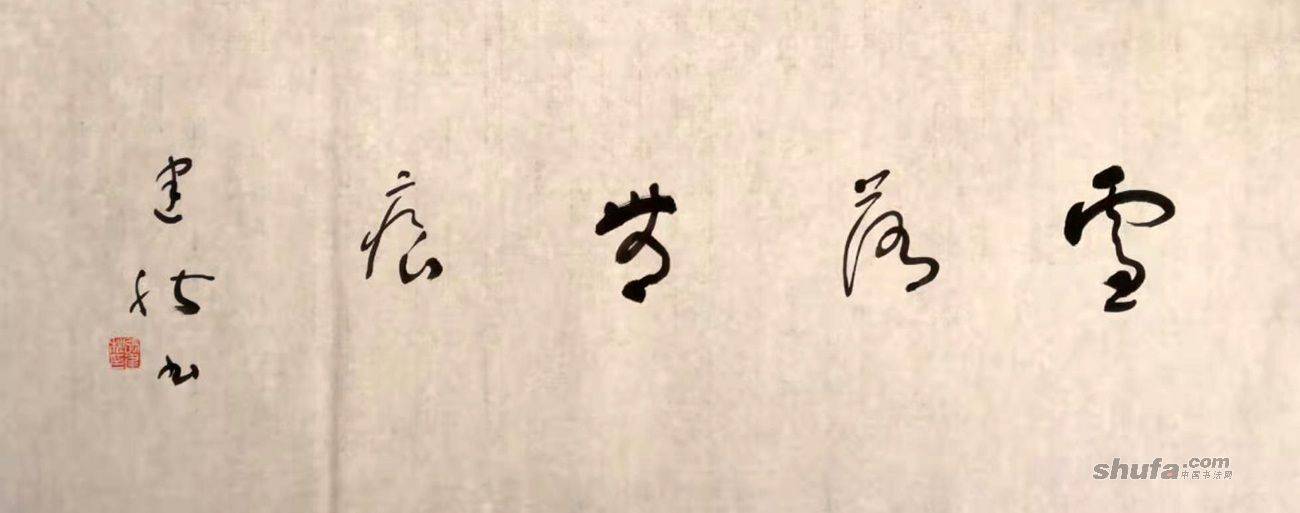 雪落無痕
建
书
shufa.com
中国书法网